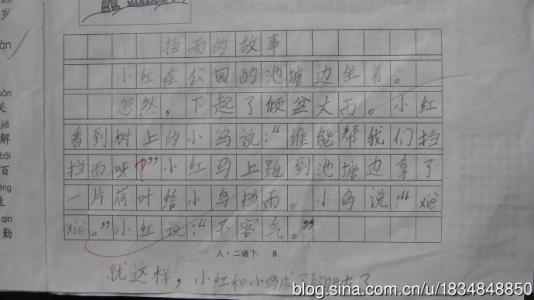 挡雨的故事
小红在公园的池塘边坐着。
忽然,下起了倾盆大雨。小红
看到树上的小鸟说:“谁能帮我们挡
挡雨呀?”小红马上跑到池塘边拿了
一片荷叶给小鸟挡雨。小鸟说:“xiè
xiè。”小红说:“不客气。”
人·二语下 8
就这样,小红和小鸟成了
岁
àn
关
jiě
解
bǎi
百
qín
勤
blog.sina.com.cn/u/1834848850